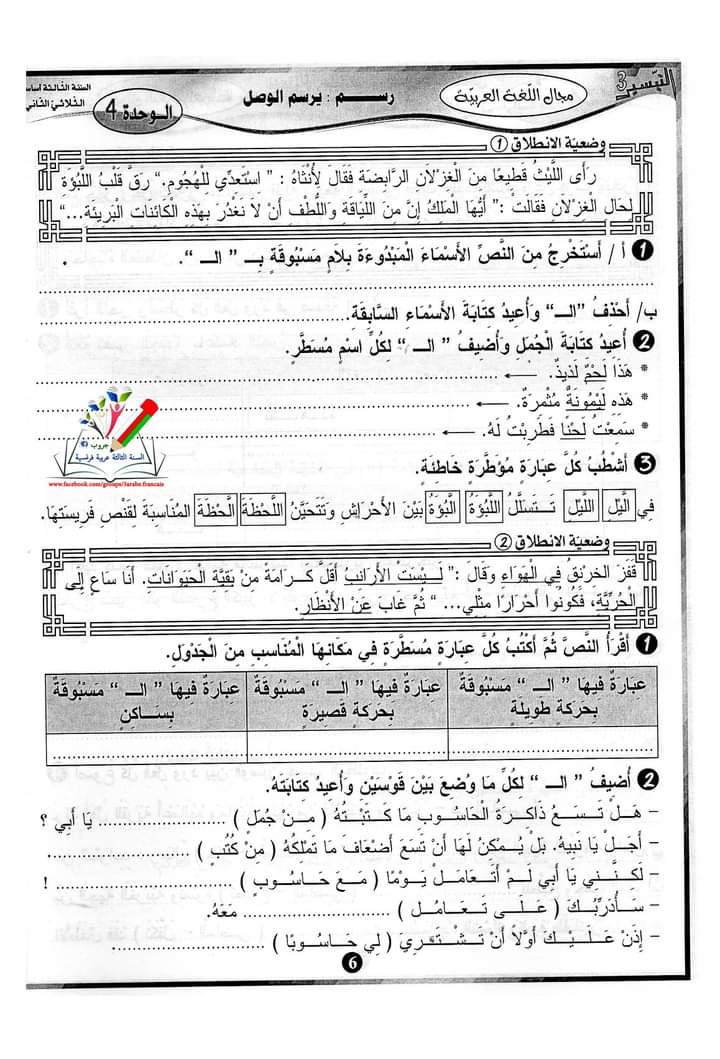 التيسير 3
مجال اللغة العربية
رسم : يرسم الوصل
الوحدة 4
السنة الثالثة أساس
الثلاثي الثاني
وضعية الانطلاق ①
رَأَى اللَّيْثُ قَطِيعًا مِنَ الْغِزْلَانِ الرَّابِضَةِ فَقَالَ لِأُنْثَاهُ : " اسْتَعِدِّي لِلْهُجُومِ." رَقَّ قَلْبُ اللَّبُؤَةِ
لِحَالِ الْغِزْلَانِ فَقَالَتْ :" أَيُّهَا الْمَلِكُ إِنَّ مِنَ اللَّيَاقَةِ وَاللُّطْفِ أَنْ لَا نَغْدُرَ بِهَذِهِ الْكَائِنَاتِ الْبَرِيئَةِ..."
1 أ / أَسْتَخْرِجُ مِنَ النَّصِّ الْأَسْمَاءَ الْمَبْدُوءَةَ بِلَامٍ مَسْبُوقَةٍ بِـ " الـ ". .
ب/ أَحْذِفُ "الـ" وَأُعِيدُ كِتَابَةَ الْأَسْمَاءِ السَّابِقَةِ.
2 أُعِيدُ كِتَابَةَ الْجُمَلِ وَأُضِيفُ " الـ " لِكُلِّ اسْمٍ مُسَطَّرٍ.
* هَذَا لَحْمٌ لَذِيذٌ. ←
* هَذِهِ لَيْمُونَةٌ مُثْمِرَةٌ. ←
* سَمِعْتُ لَحْنًا فَطَرِبْتُ لَهُ. ←
جروب
السنة الثالثة عربية فرنسية
www.facebook.com/groups/3arabe.francais
3 أَشْطُبُ كُلَّ عِبَارَةٍ مُؤَطَّرَةٍ خَاطِئَةٍ.
فِي الَيْلِ اللَّيْلِ تَتَسَلَّلُ اللَّبُؤَةُ الَبُؤَةُ بَيْنَ الْأَحْرَاشِ وَتَتَحَيَّنُ اللَّحْظَةَ الَحْظَةَ الْمُنَاسِبَةَ لِقَنْصِ فَرِيسَتِهَا.
وضعية الانطلاق ②
قَفَزَ الْخِرْنِقُ فِي الْهَوَاءِ وَقَالَ :" لَيْسَتْ الْأَرَانِبُ أَقَلَّ كَرَامَةً مِنْ بَقِيَّةِ الْحَيَوَانَاتِ. أَنَا سَاعٍ إِلَى
الْحُرِّيَّةِ، فَكُونُوا أَحْرَارًا مِثْلِي... " ثُمَّ غَابَ عَنِ الْأَنْظَارِ.
1 أَقْرَأُ النَّصَّ ثُمَّ أَكْتُبُ كُلَّ عِبَارَةٍ مُسَطَّرَةٍ فِي مَكَانِهَا الْمُنَاسِبِ مِنَ الْجَدْوَلِ.
عِبَارَةٌ فِيهَا " الـ " مَسْبُوقَةٌ بِحَرَكَةٍ طَوِيلَةٍ
عِبَارَةٌ فِيهَا " الـ " مَسْبُوقَةٌ بِحَرَكَةٍ قَصِيرَةٍ
عِبَارَةٌ فِيهَا " الـ " مَسْبُوقَةٌ بِسَاكِنٍ
2 أُضِيفُ " الـ " لِكُلِّ مَا وُضِعَ بَيْنَ قَوْسَيْنِ وَأُعِيدُ كِتَابَتَهُ.
– هَلْ تَسَعُ ذَاكِرَةُ الْحَاسُوبِ مَا كَتَبْتُهُ ( مِنْ جُمَلٍ ) .......... يَا أَبِي ؟
– أَجَلْ يَا نَبِيهُ. بَلْ يُمْكِنُ لَهَا أَنْ تَسَعَ أَضْعَافَ مَا تَمْلِكُهُ ( مِنْ كُتُبٍ ) ..........
– لَكِنَّنِي يَا أَبِي لَمْ أَتَعَامَلْ يَوْمًا ( مَعَ حَاسُوبٍ ) .......... !
– سَأُدَرِّبُكَ ( عَلَى تَعَامُلٍ ) .......... مَعَهُ.
– إِذَنْ عَلَيْكَ أَوَّلًا أَنْ تَشْتَرِيَ ( لِي حَاسُوبًا ) ..........
6